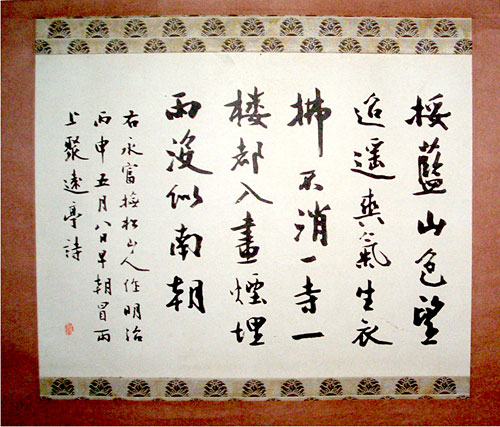 挼藍山色望
迢遥爽氣生衣
拂不消一寺一
楼都入畫煙埋
雨没似南朝
右永富撫松山人作明治
丙申五月八日早朝冒雨
上聚遠亭詩